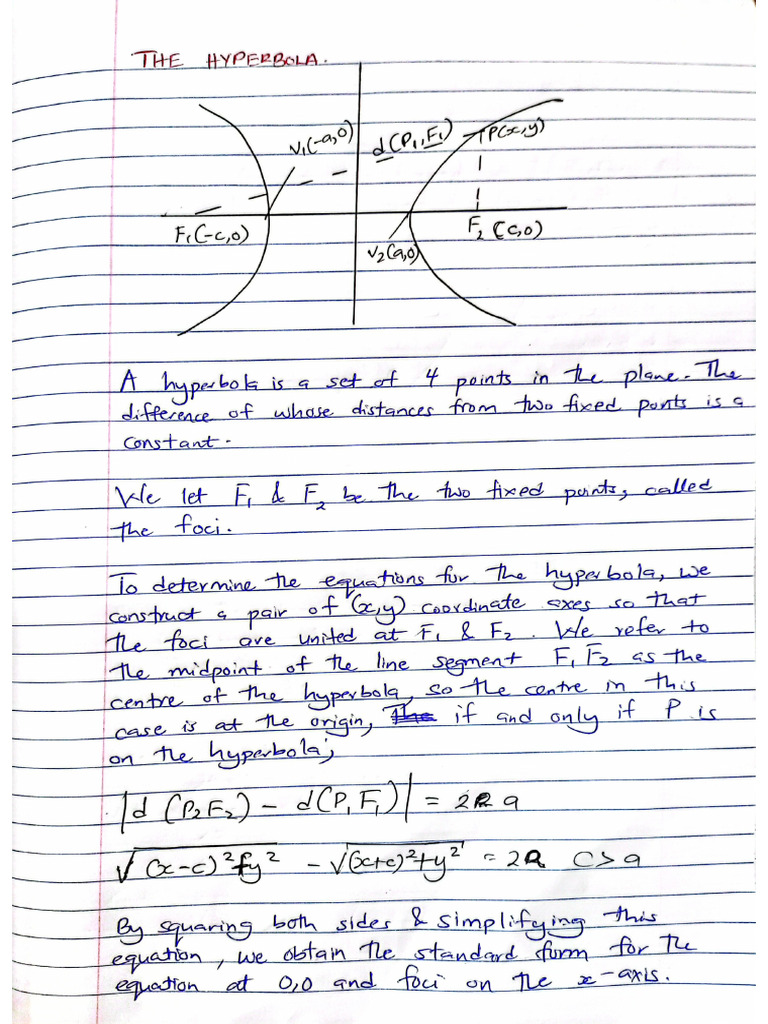 THE HYPERBOLA.
V₁(-a,0)
d(P₁,F₁)
P(x,y)
F₁(-c,0)
F₂ (c,0)
V₂(a,0)
A hyperbola is a set of 4 points in the plane. The
difference of whose distances from two fixed ponts is a
constant.
We let F₁ & F₂ be the two fixed points, called
the foci.
To determine the equations for the hyperbola, we
construct a pair of (x,y) coordinate axes so that
the foci are united at F₁ & F₂. We refer to
the midpoint of the line segment F₁F₂ as the
centre of the hyperbola, so the centre in this
case is at the origin, if and only if P is
on the hyperbola;
|d (P₂F₂) - d(P₁F₁)| = 2 a
√(x-c)²+y² - √(x+c)²+y² = 2a c>a
By squaring both sides & simplifying this
equation, we obtain the standard form for the
equation at 0,0 and foci on the x-axis.